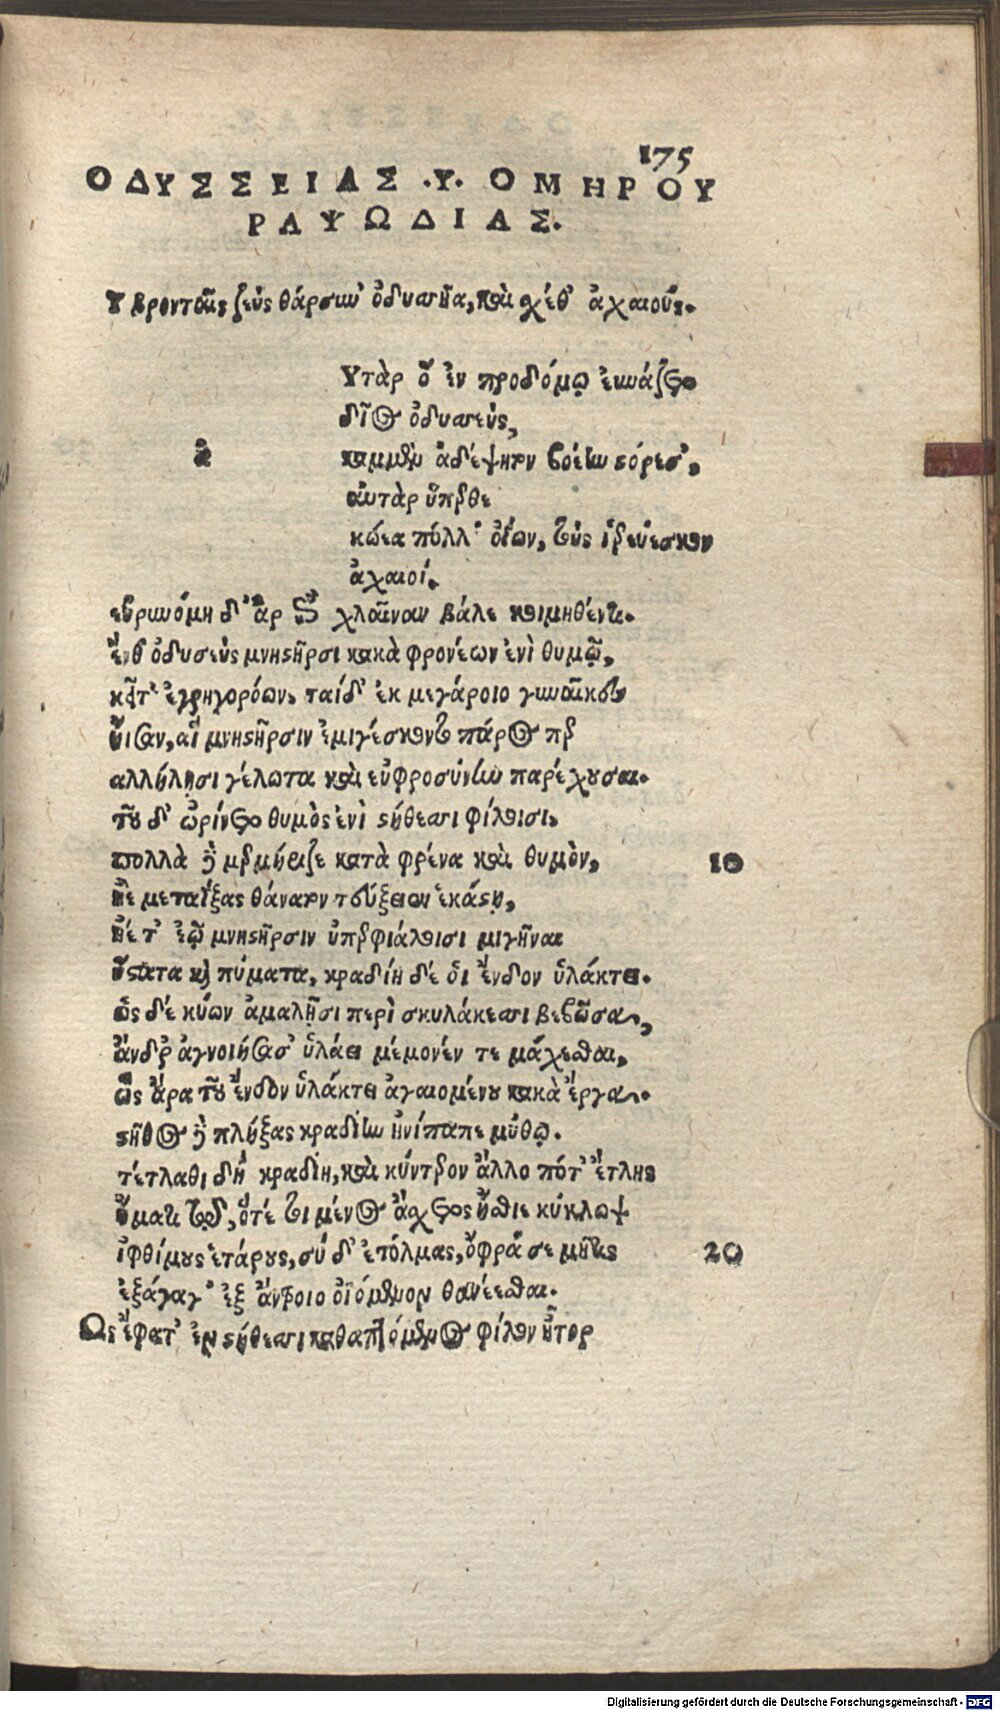 175
ΟΔΥΣΣΕΙΑΣ .Υ. ΟΜΗΡΟΥ
ΡΑΨΩΔΙΑΣ.
Υ βροντῶν ζεὺς θάρσυν' ὀδυσῆα, καὶ χέθ' ἀχαιούς.
Υτὰρ ὃ ἐν προδόμῳ ἐυνάζετο
δῖος ὀδυσεύς,
ἀ
καμμὲν ἀδέψητον βοέην στόρεσ',
αὐτὰρ ὕπερθε
κώεα πόλλ' ὀΐων, τοὺς ἱρεύεσκον
ἀχαιοί.
εὐρυνόμη δ' ἂρ ἐπὶ χλαῖναν βάλε κοιμηθέντι.
ἔνθ' ὀδυσεὺς μνηστῆρσι κακὰ φρονέων ἐνὶ θυμῷ,
κεῖτ' ἐγρηγορόων. ταὶ δ' ἐκ μεγάροιο γυναῖκες
ἤισαν, αἳ μνηστῆρσιν ἐμιγέσκοντο πάρος περ
αλλήλῃσι γέλωτα καὶ εὐφροσύνην παρέχουσαι.
τοῦ δ' ὠρίνετο θυμὸς ἐνὶ στήθεσσι φίλοισι.
πολλὰ δὲ μερμήριζε κατὰ φρένα καὶ θυμὸν,
10
ἠὲ μεταΐξας θάνατον τεύξειεν ἑκάστῃ,
ἦ ἔτ' ἐῷ μνηστῆρσιν ὑπερφιάλοισι μιγῆναι
ὕστατα καὶ πύματα, κραδίη δέ ὁι ἔνδον ὑλάκτει.
ὡς δὲ κύων ἀμαλῇσι περὶ σκυλάκεσσι βεβῶσα,
ἄνδρ' ἀγνοιήσασ' ὑλάει μέμονέν τε μάχεσθαι,
ὣς ἄρα τοῦ ἔνδον ὑλάκτει ἀγαιομένου κακὰ ἔργα.
στῆθος δὲ πλήξας κραδίην ἠνίπαπε μύθῳ.
τέτλαθι δὴ κραδίη, καὶ κύντερον ἄλλο πότ' ἔτλης
ἤματι τῷδ', ὅτέ τοι μένος ἄσχετος ἤσθιε κύκλωψ
ἰφθίμους ἑτάρους, σὺ δ' ἐτόλμας, ὄφρά σε μῆτις
20
ἐξάγαγ' ἐξ ἄντροιο ὀϊόμενον θανέεσθαι.
Ὣς ἔφατ' ἐν στήθεσσι καθαπτόμενος φίλον ἦτορ
Digitalisierung gefördert durch die Deutsche Forschungsgemeinschaft - DFG